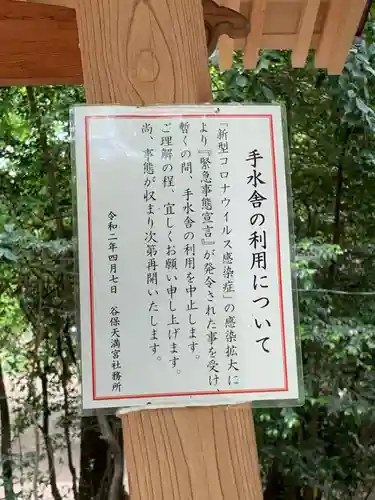 手水舎の利用について
「新型コロナウイルス感染症」の感染拡大に
より『緊急事態宣言』が発令された事を受け
暫くの間、手水舎の利用を中止します。
ご理解の程、宜しくお願い申し上げます。
尚、事態が収まり次第再開いたします。
令和二年四月七日　谷保天満宮社務所